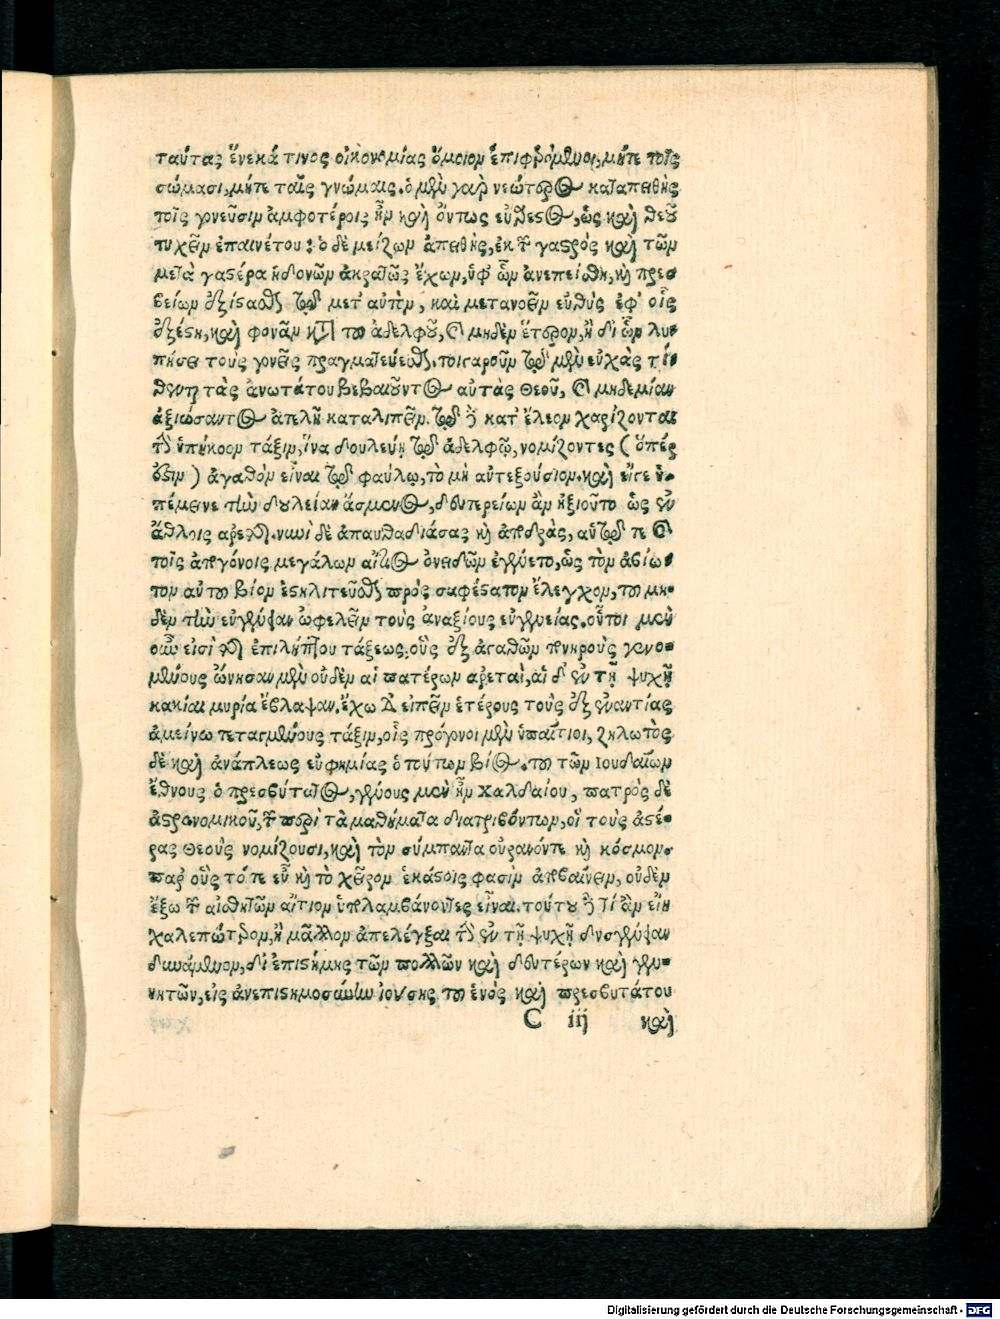 ταύτας ἕνεκά τινος οἰκονομίας ὅμοιον ἐπιφερόμενοι, μήτε τοῖς
σώμασι, μήτε ταῖς γνώμαις. ὁ μὲν γὰρ νεώτερος καταπειθὴς
τοῖς γονεῦσιν ἀμφοτέροις ἦν καὶ ὄντως εὐάρεστος, ὡς καὶ θεοῦ
τυχεῖν ἐπαινέτου: ὁ δὲ μείζων ἀπειθὴς, ἐκ τῶν γαστρὸς καὶ τῶν
μετὰ γαστέρα ἡδονῶν ἀκρατῶς ἔχων, ὑφ' ὧν ἀνεπείσθη, κὴ πρεσ
βείων ἐξίστασθαι τῷ μετ' αὐτὸν, καὶ μετανοεῖν εὐθὺς ἐφ' οἷς
ἐξέστη, καὶ φονᾶν κατὰ τοῦ ἀδελφοῦ, καὶ μηδὲν ἕτερον, ἢ δι' ὧν λυ-
πήσει τοὺς γονεῖς πραγματεύεσθαι. τοιγαροῦν τῷ μὲν εὐχὰς τί
θενται τὰς ἀνωτάτου βεβαιοῦντος αὐτὰς Θεοῦ, καὶ μηδεμίαν
ἀξιώσαντος ἀτελῆ καταλιπεῖν. τῷ δὲ κατ' ἔλεον χαρίζονται
τὴν ὑπήκοον τάξιν, ἵνα δουλεύῃ τῷ ἀδελφῷ, νομίζοντες (ὅπέρ
ἐστιν) ἀγαθὸν εἶναι τῷ φαύλῳ, τὸ μὴ αὐτεξούσιον. καὶ εἴγε ὑ-
πέμεινε τὴν δουλείαν ἄσμενος, δευτερείων ἂν ἠξιοῦτο ὡς ἐν
ἄθλοις ἀρετῆς. νυνὶ δὲ ἀπαυθαδιάσας κὴ ἀποδρὰς, αὑτῷ τε καὶ
τοῖς ἀπογόνοις μεγάλων αἴτιος ὀνειδῶν ἐγένετο, ὡς τὸν ἀβίω-
τον αὐτοῦ βίον ἐστηλιτεῦσθαι πρὸς σαφέστατον ἔλεγχον, τοῦ μη-
δὲν τὴν εὐγένειαν ὠφελεῖν τοὺς ἀναξίους εὐγενείας. οὗτοι μὲν
οὖν εἰσὶ τῆς ἐπιλήπτου τάξεως, οὓς ἐξ ἀγαθῶν πονηροὺς γενο-
μένους ὤνησαν μὲν οὐδὲν αἱ πατέρων ἀρεταὶ, αἱ δ' ἐν τῇ ψυχῇ
κακίαι μυρία ἔβλαψαν. ἔχω δ' εἰπεῖν ἑτέρους τοὺς ἐξ ἐναντίας
ἀμείνω τεταγμένους τάξιν, οἷς πρόγονοι μὲν ὑπαίτιοι, ζηλωτὸς
δὲ καὶ ἀνάπλεως εὐφημίας ὁ τούτων βίος. τοῦ τῶν Ἰουδαίων
ἔθνους ὁ πρεσβύτατος, γένους μὲν ἦν Χαλδαίου, πατρὸς δὲ
ἀστρονομικοῦ, τῶν περὶ τὰ μαθήματα διατριβόντων, οἳ τοὺς ἀστέ-
ρας Θεοὺς νομίζουσι, καὶ τὸν σύμπαντα οὐρανόντε κὴ κόσμον.
παρ' οὓς τό τε εὖ κὴ τὸ χεῖρον ἑκάστοις φασὶν ἀποβαίνειν, οὐδὲν
ἔξω τῶν αἰσθητῶν αἴτιον ὑπολαμβάνοντες εἶναι. τούτου δὲ τί ἂν εἴη
χαλεπώτερον, ἢ μᾶλλον ἀπελέγξαι τὴν ἐν τῇ ψυχῇ δυσγένειαν
δυνάμενον, δι' ἐπιστήμης τῶν πολλῶν καὶ δευτέρων καὶ γεν-
νητῶν, εἰς ἀνεπιστημοσύνην ἰούσης τοῦ ἑνὸς καὶ πρεσβυτάτου
C iij καὶ
Digitalisierung gefördert durch die Deutsche Forschungsgemeinschaft - DFG